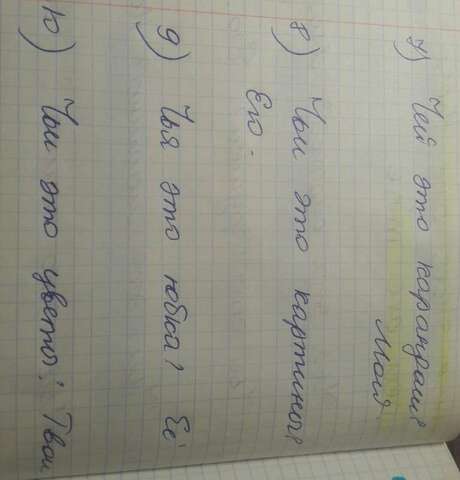 7) Чей это карандаш?
Мой.
8) Чьи это картины?
Его.
9) Чья это юбка? Её
10) Чьи это цветы? Твои